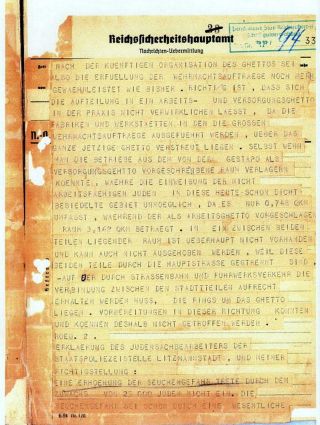 Reichssicherheitshauptamt
Nachrichten-Uebermittlung
33
NACH DER KUENFTIGEN ORGANISATION DES GHETTOS SEI
ALSO DIE ERFUELLUNG DER WEHRMACHTAUFTRAEGE NOCH MEHR
GEWAEHRLEISTET WIE BISHER. RICHTIG IST, DASS SICH
DIE AUFTEILUNG IN EIN ARBEITS- UND VERSORGUNGSGHETTO
IN DER PRAXIS NICHT VERWIRKLICHEN LAESST, DA DIE
FABRIKEN UND WERKSTAETTEN IN DEN DIE GROSSEN
WEHRMACHTAUFTRAEGE AUSGEFUEHRT WERDEN, UEBER DAS
GANZE JETZIGE GHETTO VERSTREUT LIEGEN. SELBST WENN
MAN DIE BETRIEBE AUS DEM VON DER GESTAPO ALS
VERSORGUNGSGHETTO VORGESCHRIEBENE RAUM VERLAGERN
KOENNTE, WAEHRE DIE EINWEISUNG DER NICHT
ARBEITSFAEHIGEN JUDEN IN DIESE HEUTE SCHON DICHT-
BESIEDELTE GEBIET UNMOEGLICH, DA ES NUR 0,748 QKM
UMFASST, WAEHREND DER ALS ARBEITSGHETTO VORGESCHLAGEN
RAUM 3,142 QKM BETRAEGT. IN EIN ZWISCHEN BEIDEN
TEILEN LIEGENDER RAUM IST UEBERHAUPT NICHT VORHANDEN
UND KANN AUCH NICHT AUSGEHOBEN WERDEN, WEIL DIESE
BEIDEN TEILE DURCH DIE HAUPTSTRASSE GETRENNT SIND,
AUF DER DURCH STRASSENBAHN UND FUHRWERKSVERKEHR DIE
VERBINDUNG ZWISCHEN DEN STADTTEILEN AUFRECHT
ERHALTEN WERDEN MUSS, DIE RINGS UM DAS GHETTO
LIEGEN. VORBEREITUNGEN IN DIESER RICHTUNG KONNTEN
UND KOENNEN DESHALB NICHT GETROFFEN WERDEN.
ROEM. 2.
ERKLAERUNG DES JUDENSACHBEARBEITERS DER
STAATSPOLIZEISTELLE LITZMANNSTADT, UND MEINER
RICHTIGSTELLUNG:
EINE ERHOEHUNG DER SEUCHENGEFAHR TRETE DURCH DEN
VON 25 000 JUDEN NICHT EIN. DIE
SEUCHENGEFAHR SEI SCHON DURCH EINE WESENTLICHE